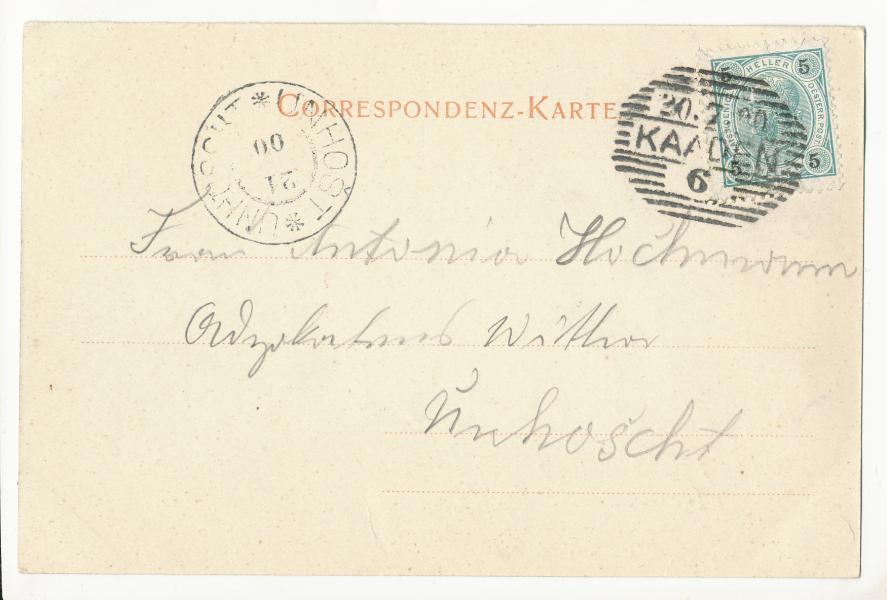 CORRESPONDENZ-KARTE
UNHOŠT * UNHOSCHT *
21
00
20.2.00
KAADEN
6
5 HELLER 5
OESTERR. POST.
5 5
Frau Antonia Hochmann
Advokatens Witwe
Unhošcht